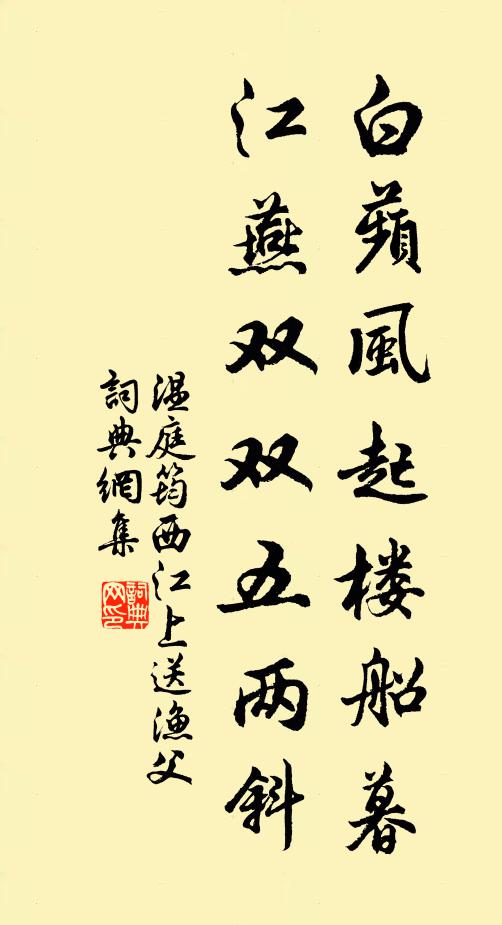 白蘋風起楼船暮
江燕双双五两斜
温庭筠西江上送渔父
詞典網集
詞典网印